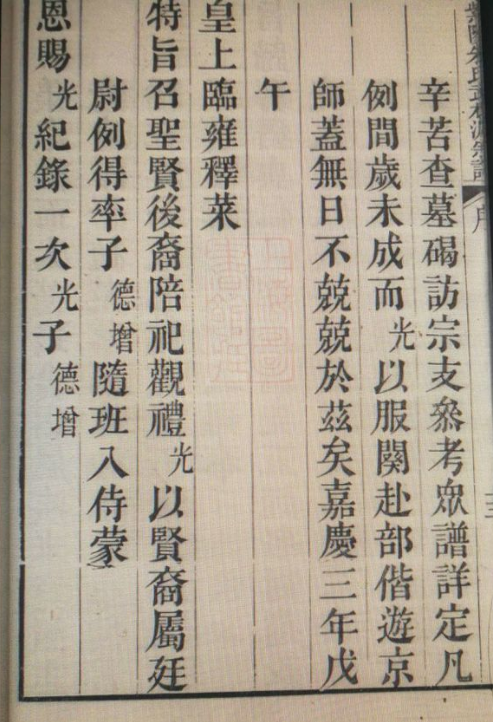 辛苦查墓碣訪宗支叅考眾譜詳定凡
例間歲未成而光以服闋赴部偕遊京
師蓋無日不兢兢於茲矣嘉慶三年戊
午
皇上臨雍釋菜
特旨召聖賢後裔陪祀觀禮光以賢裔屬廷
尉例得率子德增隨班入侍蒙
恩賜光紀錄一次光子德增